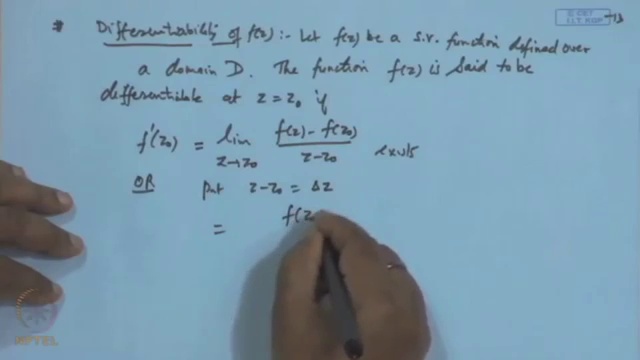 # Differentiability of f(z) :- Let f(z) be a s.v. function defined over
a domain D. The function f(z) is said to be
differentiable at z = z₀ if
f'(z₀) = lim z→z₀ f(z) - f(z₀) / z - z₀ exists
OR put z - z₀ = Δz
= f(z
NPTEL